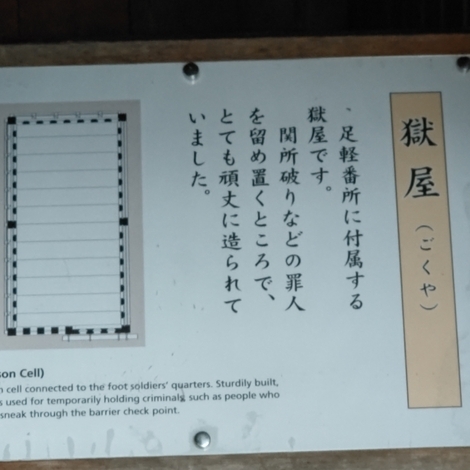 獄屋（ごくや）
、足軽番所に付属する
獄屋です。
関所破りなどの罪人
を留め置くところで、
とても頑丈に造られて
いました。
Cell)
cell connected to the foot soldiers' quarters. Sturdily built,
used for temporarily holding criminals, such as people who
sneak through the barrier check point.